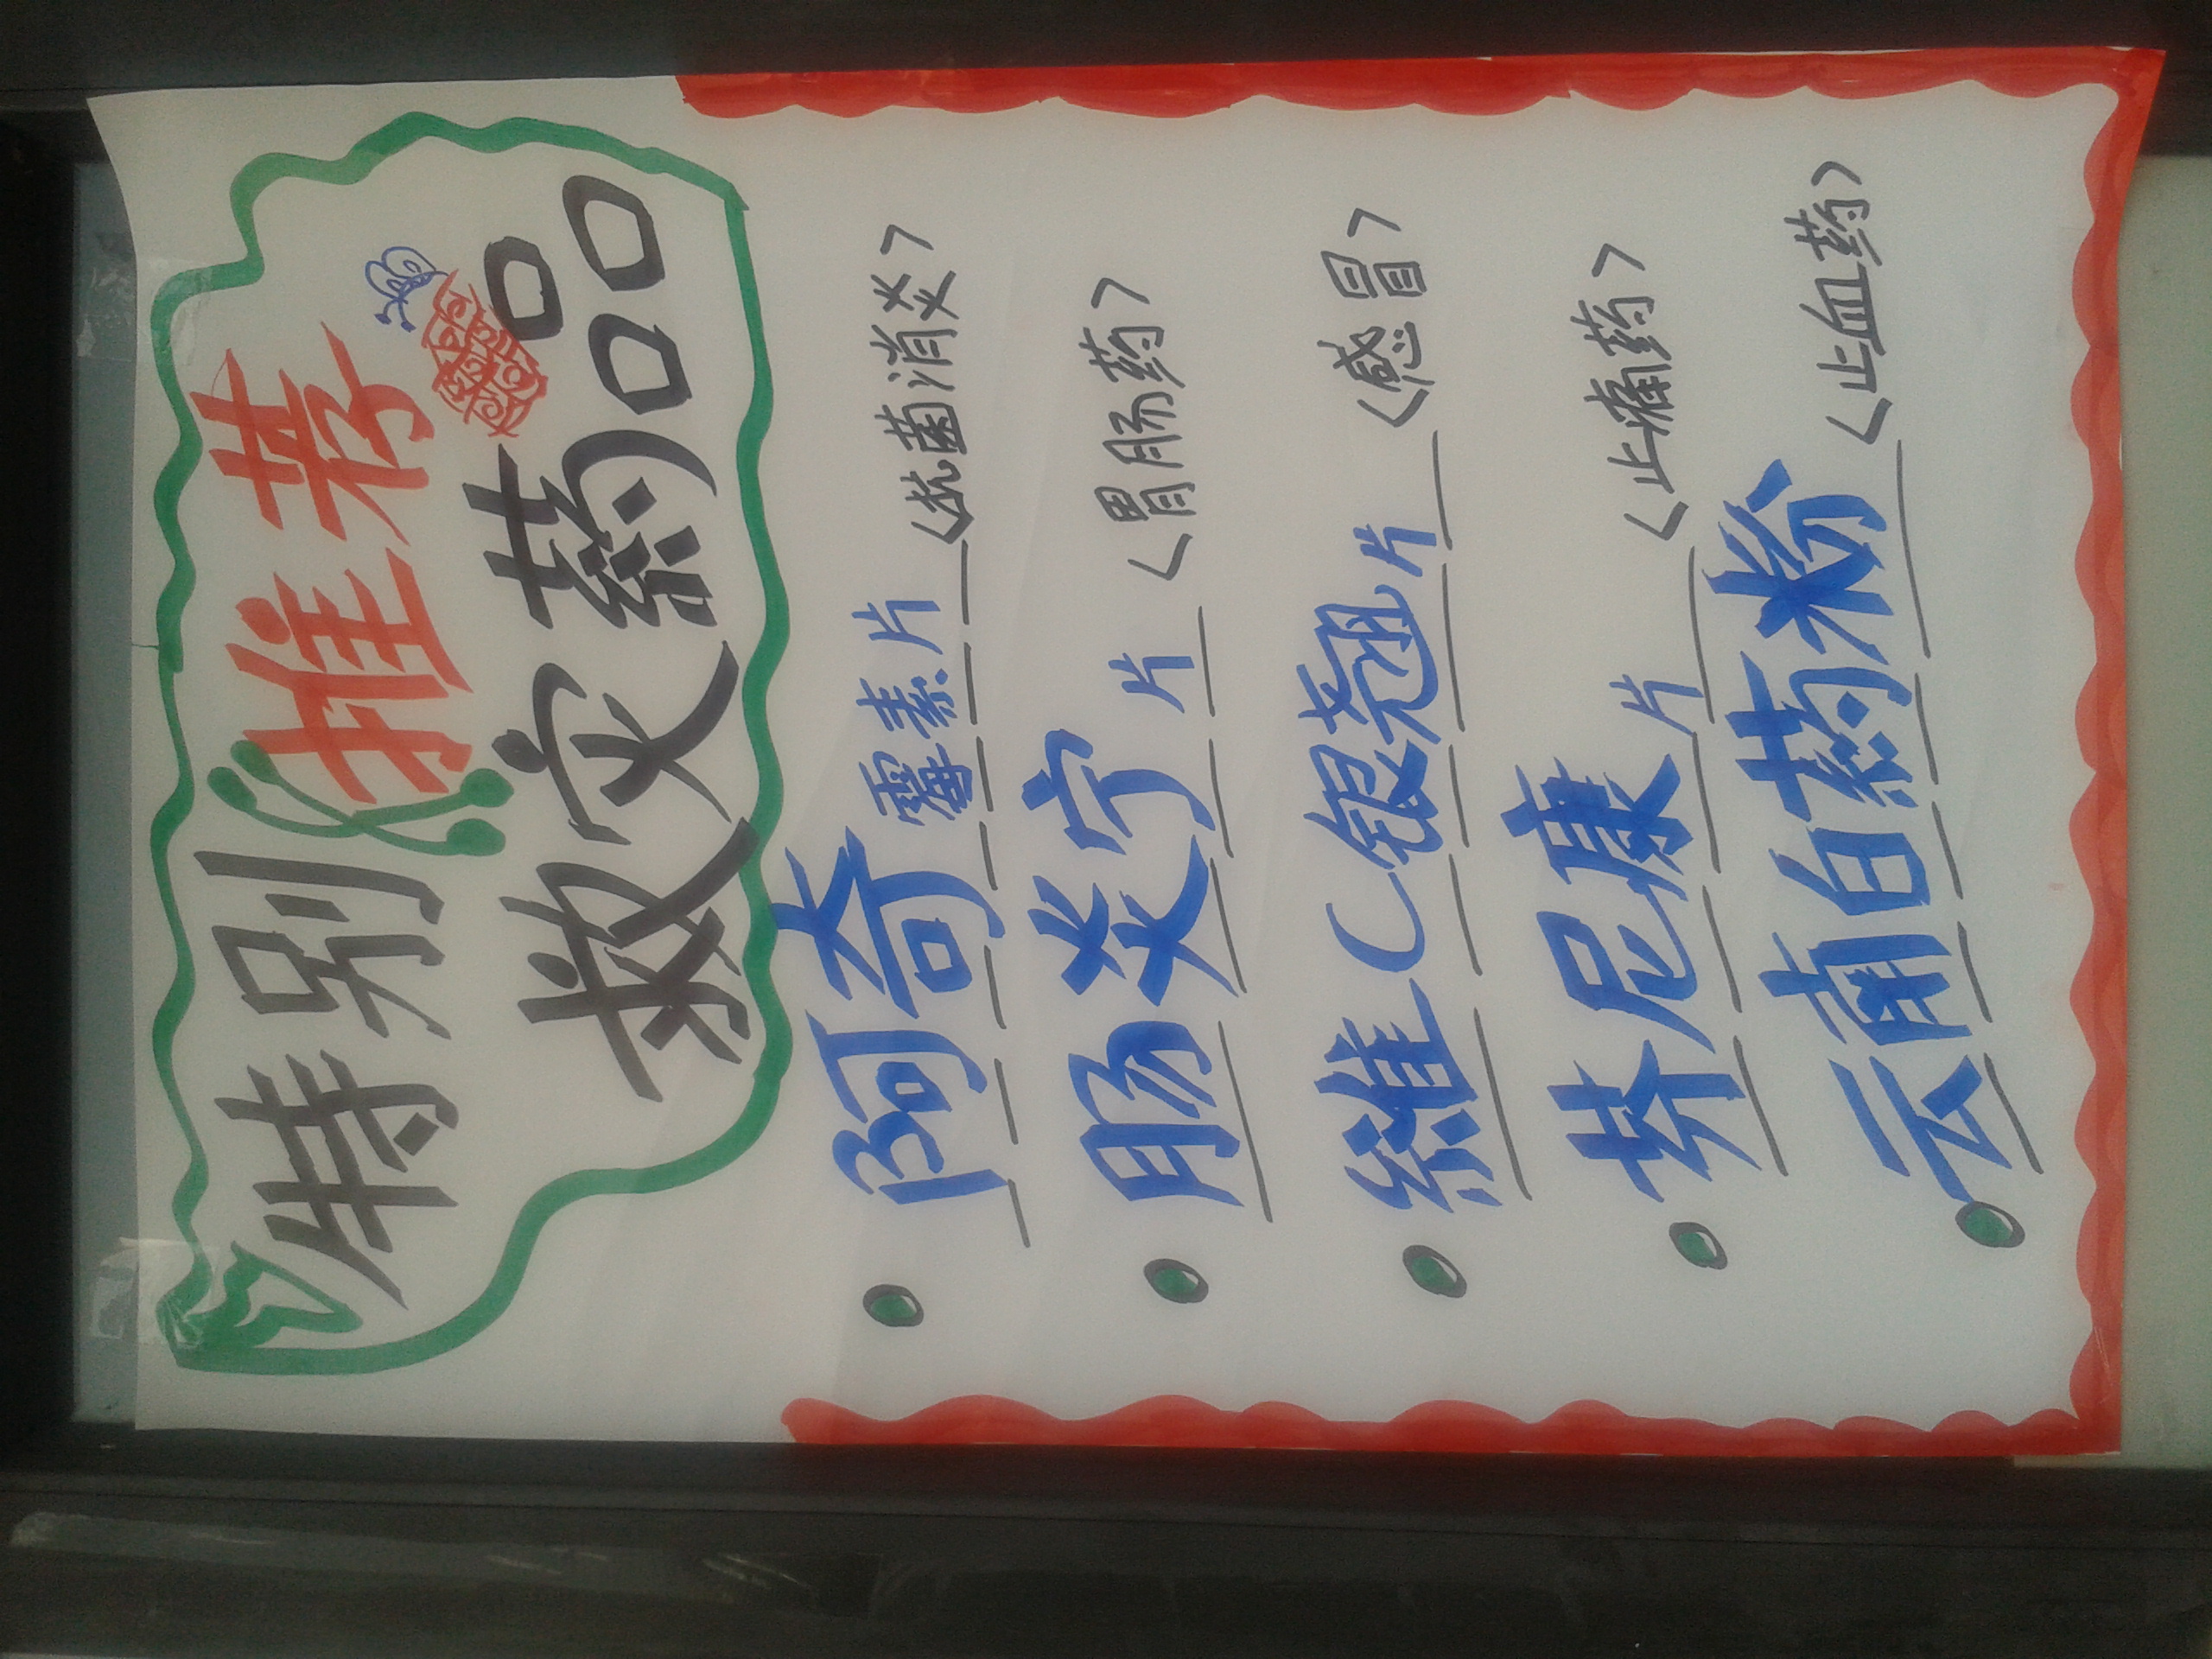 特别推荐
救灾药品
阿奇霉素片〈抗菌消炎〉
肠炎宁片〈胃肠药〉
維C银翘片〈感冒〉
芬尼康片〈止痛药〉
云南白药粉〈止血药〉